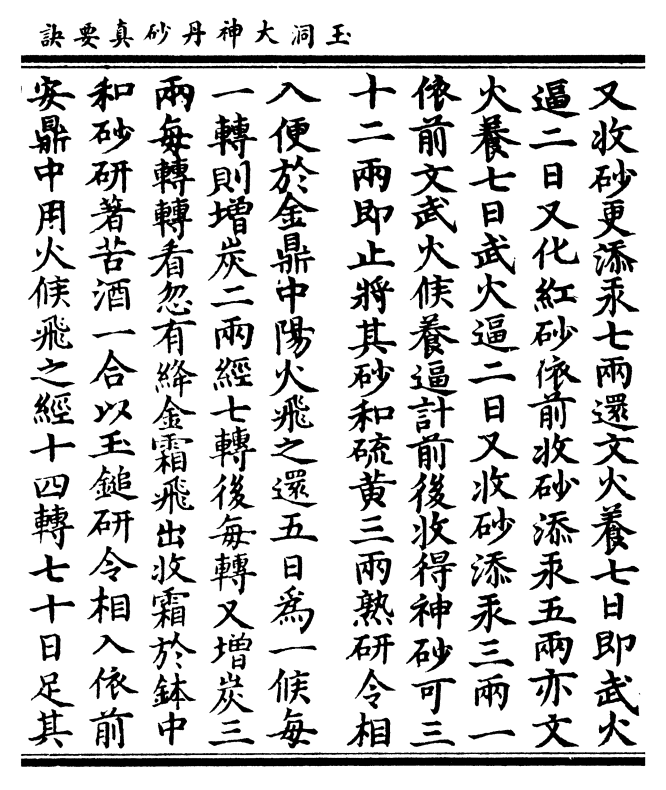 玉洞大神丹砂真要訣
又收砂更添汞七兩還文火養七日即武火
逼二日又化紅砂依前收砂添汞五兩亦文
火養七日武火逼二日又收砂添汞三兩一
依前文武火候養逼計前後收得神砂可三
十二兩即止將其砂和硫黄三兩熟研令相
入便於金鼎中陽火飛之還五日爲一候每
一轉則增炭二兩經七轉後每轉又增炭三
兩每轉轉看忽有絳金霜飛出收霜於鉢中
和砂研著苦酒一合以玉鎚研令相入依前
安鼎中用火候飛之經十四轉七十日足其